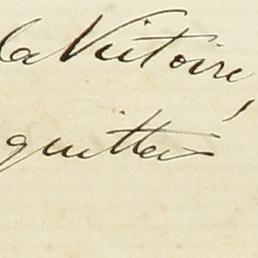 la Victoire,
quittai